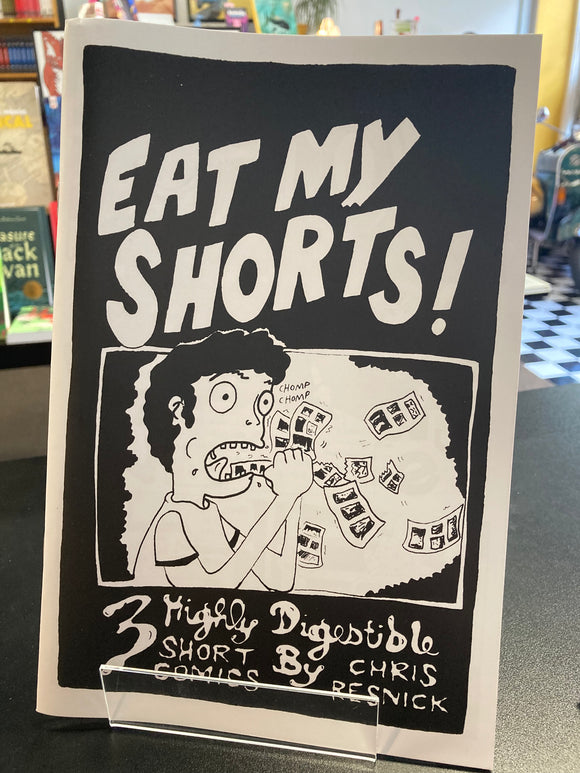 EAT MY
SHORTS!
CHOMP
CHOMP
3 Highly Digestible
SHORT By CHRIS
COMICS RESNICK